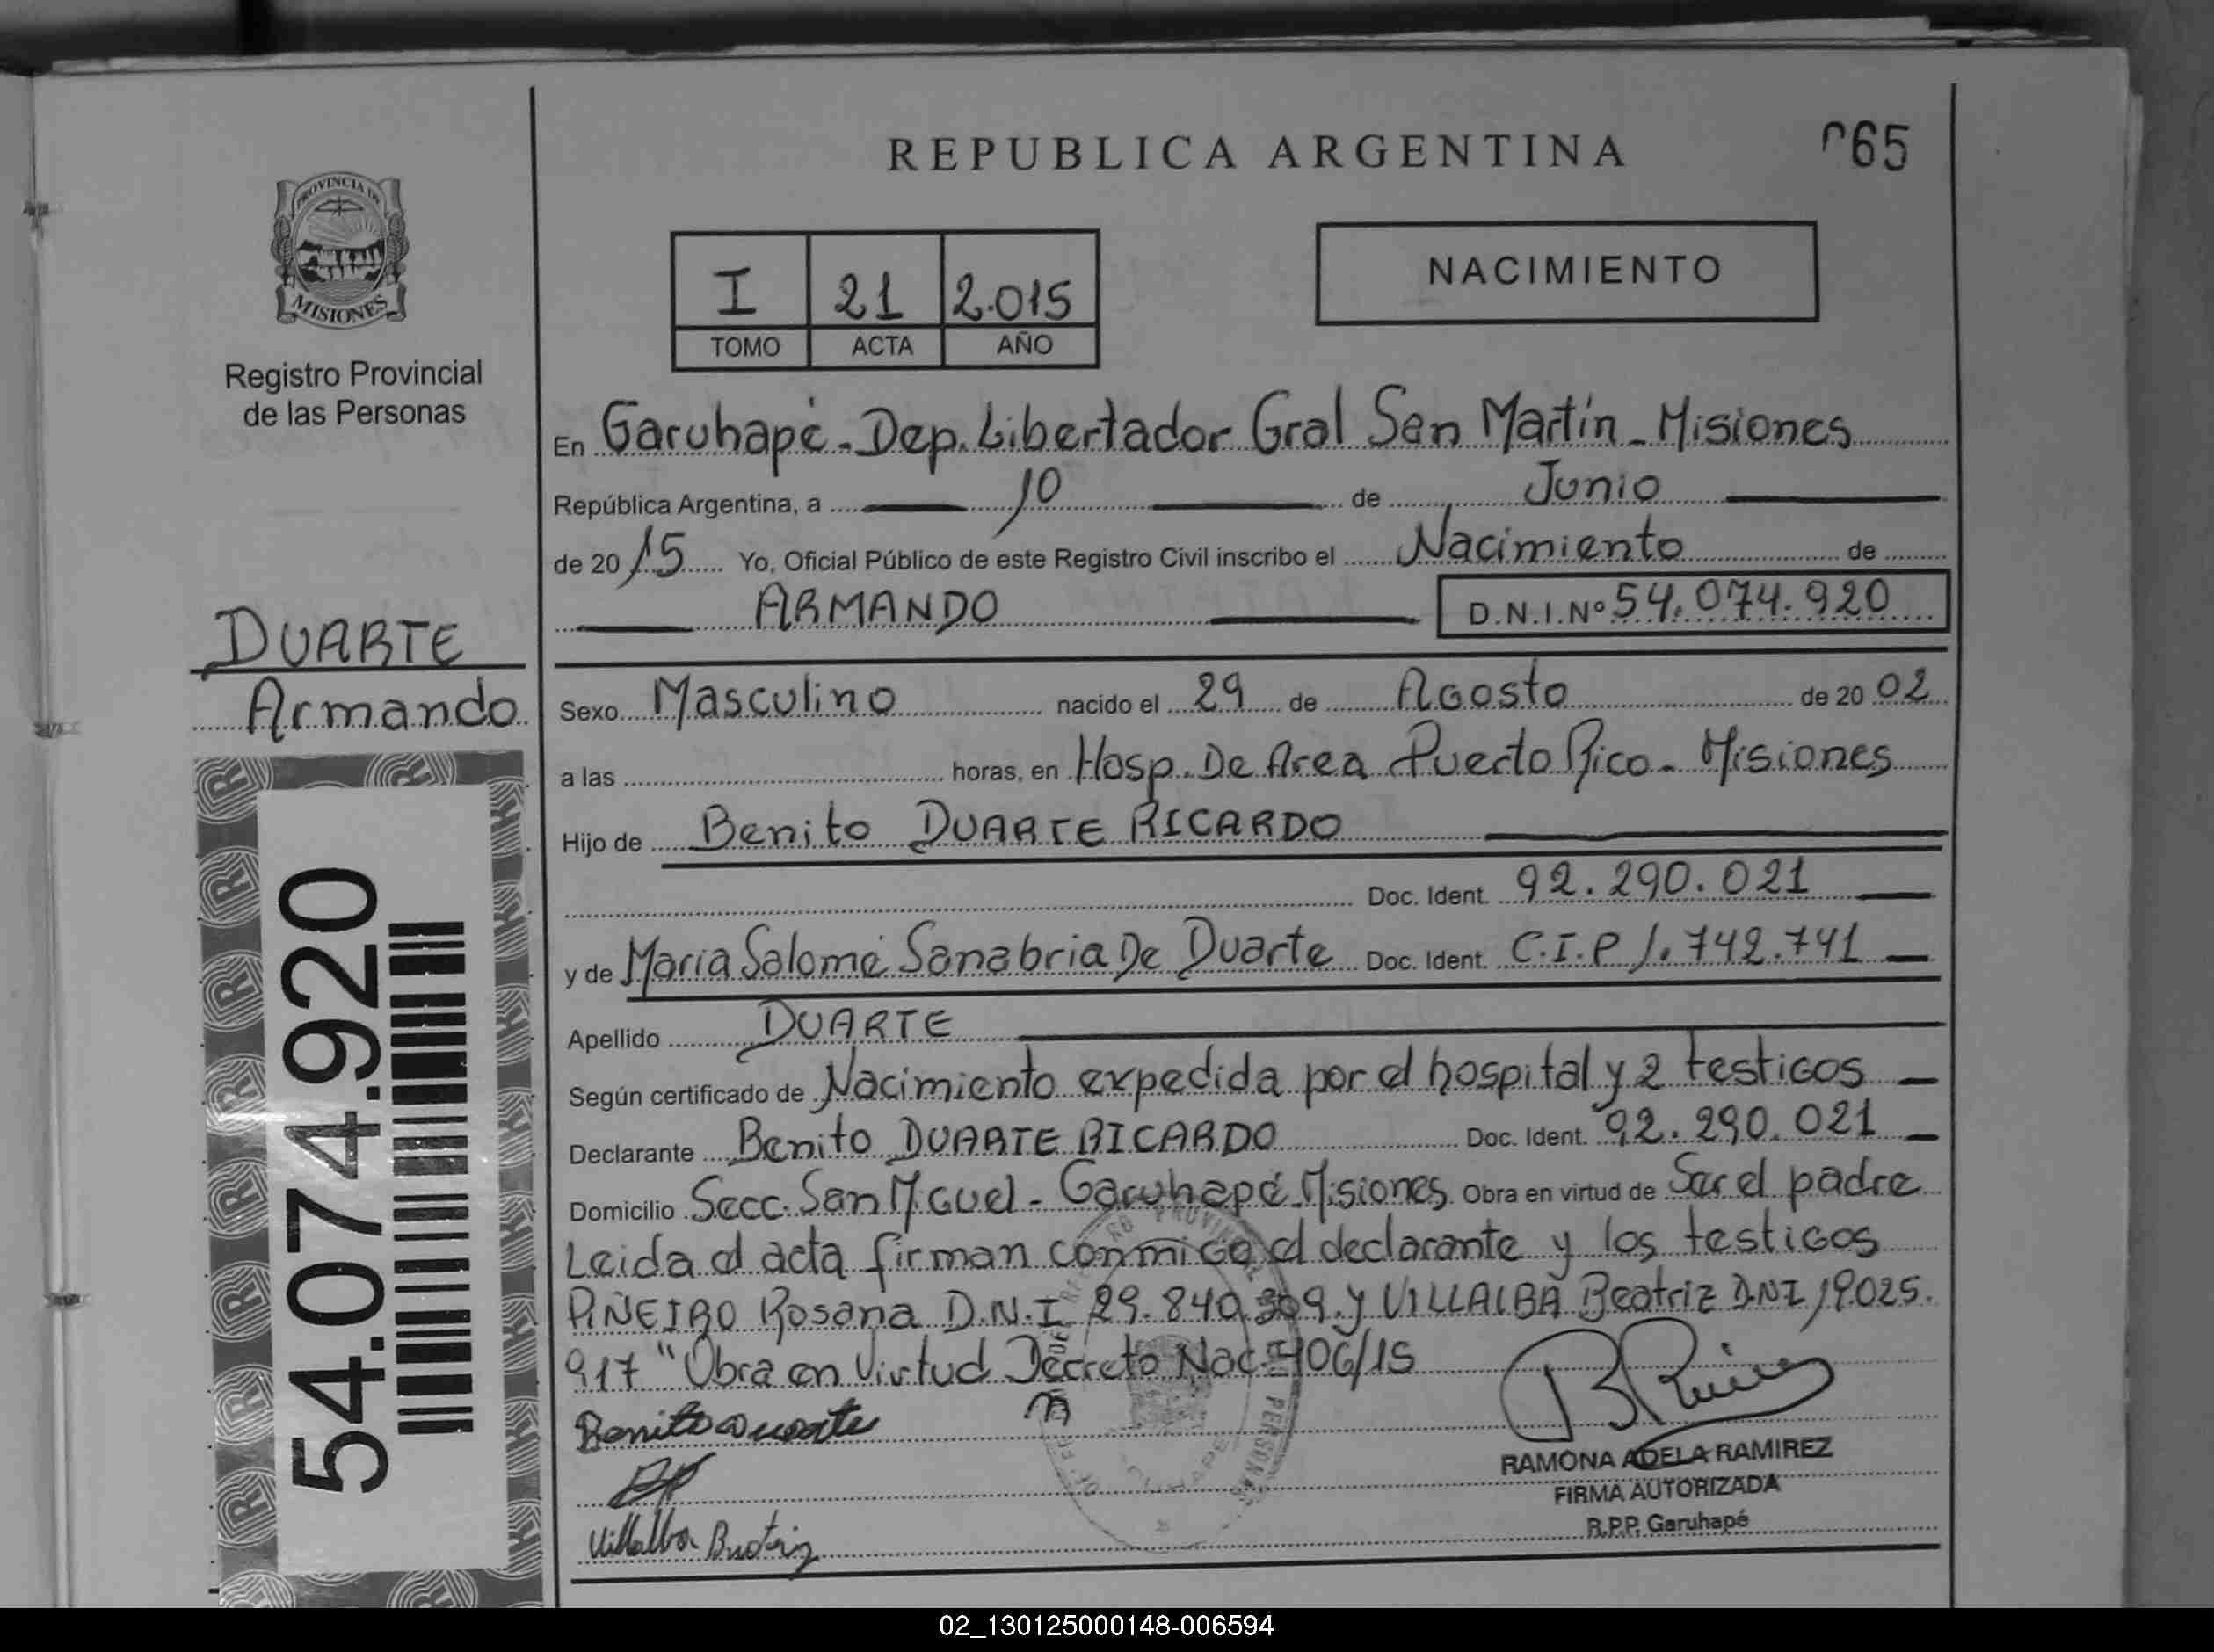 REPUBLICA ARGENTINA
065
PROVINCIA DE
MISIONES
Registro Provincial
de las Personas
I 21 2.015
TOMO ACTA AÑO
NACIMIENTO
En Garuhapé - Dep. Libertador Gral San Martín - Misiones
República Argentina, a 10 de Junio
de 2015 Yo, Oficial Público de este Registro Civil inscribo el Nacimiento de
ARMANDO D.N.I.Nº 54.074.920
DUARTE
Armando
54.074.920
Sexo Masculino nacido el 29 de Agosto de 20 02
a las horas, en Hosp. De Area Puerto Rico - Misiones
Hijo de Benito DUARTE RICARDO
Doc. Ident. 92.290.021
y de María Salomé Sanabria De Duarte Doc. Ident. C.I.P 1.742.741
Apellido DUARTE
Según certificado de Nacimiento expedida por el hospital y 2 testigos
Declarante Benito DUARTE RICARDO Doc. Ident. 92.290.021
Domicilio Secc. San Miguel - Garuhapé Misiones Obra en virtud de Ser el padre
Leida el acta firman conmigo el declarante y los testigos
PIÑEIRO Rosana D.N.I 29.840.309 y VILLALBA Beatriz D.N.I 19.025.
917 "Obra en Virtud Decreto Nac. 406/15
Benito Duarte
Villalba Beatriz
RAMONA ADELA RAMIREZ
FIRMA AUTORIZADA
R.P.P. Garuhapé
02_130125000148-006594